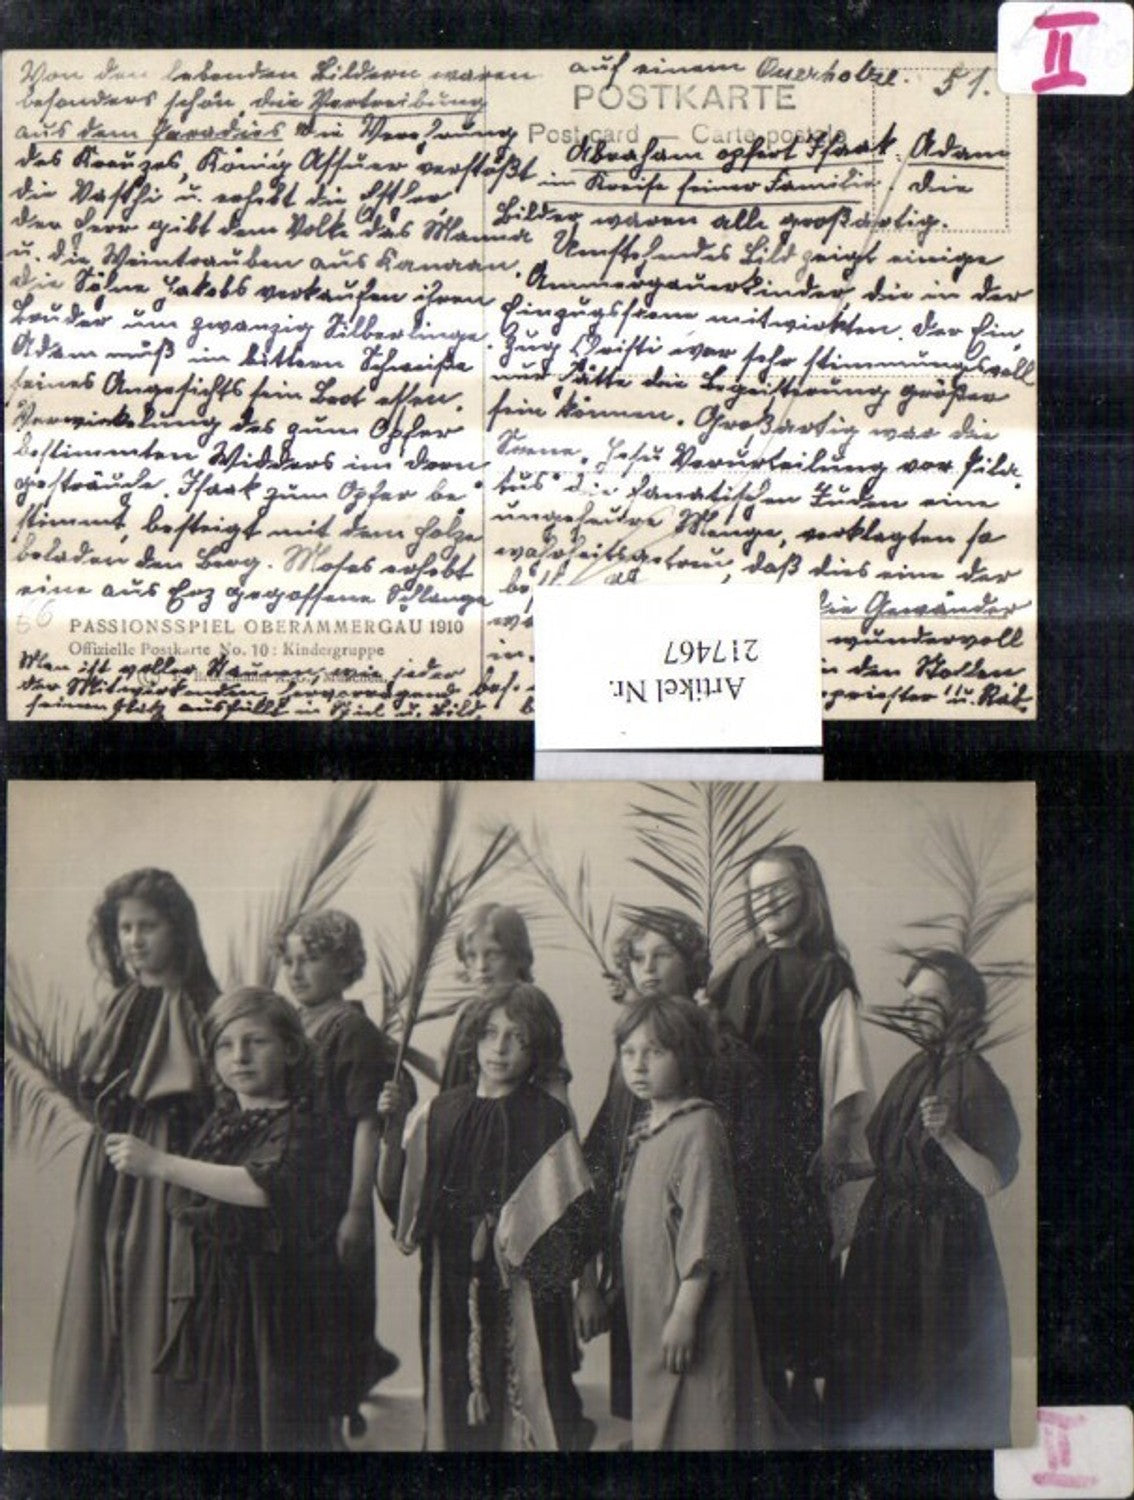 II
Von den lebenden Bildern waren
besonders schön, die Vertreibung
aus dem Paradies die Verehrung
des Kreuzes, König Assuer verstößt
die Vasthi u. erhebt die Esther,
der Herr gibt dem Volke das Manna
u. die Weintrauben aus Kanaan.
die Söhne Jakobs verkaufen ihren
Bruder um zwanzig Silberlinge.
Adam muß im bittern Schweiße
seines Angesichts sein Brot essen.
Verwickelung des zum Opfer
bestimmten Widders im Dorn
gesträuche. Isaak zum Opfer be
stimmt, besteigt mit dem Holze
beladen den Berg. Moses erhebt
eine aus Erz gegossene Schlange
66
PASSIONSSPIEL OBERAMMERGAU 1910
Offizielle Postkarte No. 10: Kindergruppe
Man ist voller Staunen, wie jeder
der Mitwirkenden hervorragend
seinen Platz ausfüllt in Spiel u. Bild.
auf einem Querholze. 51.
POSTKARTE
Post card — Carte postale
Abraham opfert Isaak. Adam
im Kreise seiner Familie. die
Bilder waren alle großartig.
Umstehendes Bild zeigt einige
Ammergauerkinder, die in der
Einzugsscene mitwirkten. der Ein
zug Christi war sehr stimmungsvoll
nur hätte die Begeisterung größer
sein können. Großartig war die
Scene "Jesu Verurteilung vor Pila
tus" die fanatischen Juden eine
ungeheure Menge, verklagten so
wahrheitsgetreu, daß dies eine der
die Gewänder
wundervoll
in den Rollen
u. Rat.
Artikel Nr.
217467
II